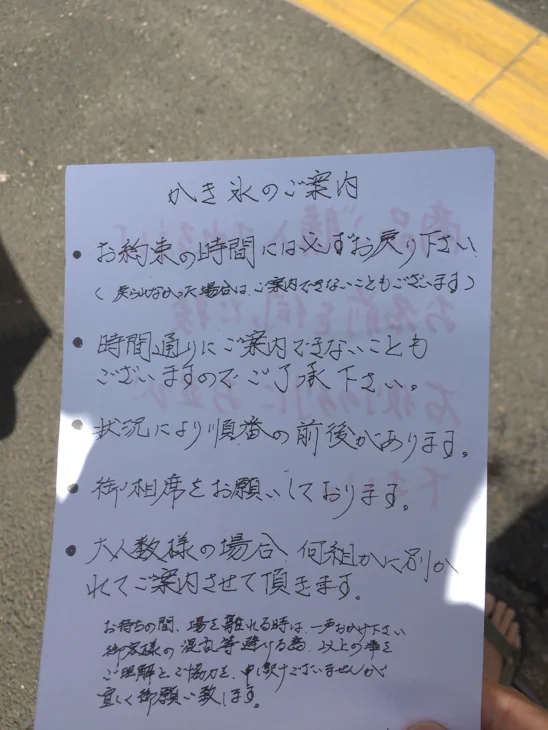 かき氷のご案内
• お約束の時間には必ずお戻り下さい
(戻られなかった場合は、ご案内できないこともございます)
• 時間通りにご案内できないことも
ございますのでご了承下さい。
• 状況により順番の前後があります。
• 御相席をお願いしております。
• 大人数様の場合 何組かに別か
れてご案内させて頂きます。
お待ちの間、場を離れる時は、一声おかけ下さい
御客様の混乱等避ける為、以上の事を
ご理解とご協力を、申し訳ございませんが
宜しく御願い致します。